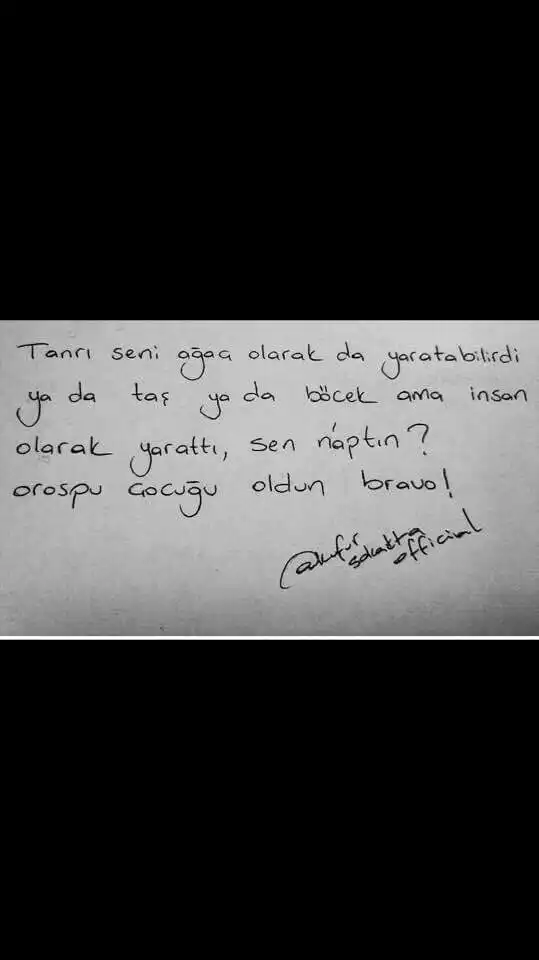 Tanrı seni ağaç olarak da yaratabilirdi
ya da taş ya da böcek ama insan
olarak yarattı, sen n'aptın?
orospu çocuğu oldun bravo!
@kufur
sokakta
official